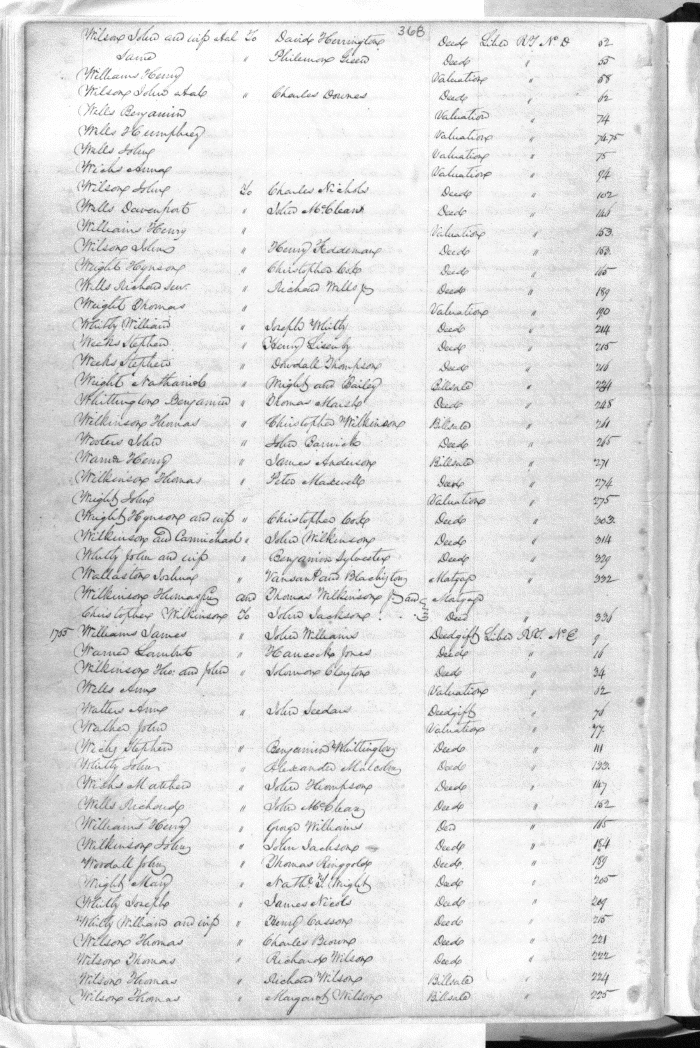 368
Wilson John and wife &al To David Herrington Deed Liber RT No D 52
Same " Philemon Green Deed " 55
Williams Henry Valuation " 58
Wilson John &al " Charles Downes Deed " 62
Wells Benjamin Valuation " 74
Wells Humphrey Valuation " 74.75
Wells John Valuation " 75
Wicks Anna Valuation " 94
Wilson John To Charles Nichols Deed " 102
Wells Davenport " John McClean Deed " 146
Williams Henry " Valuation " 153
Wilson John " Henry Feddeman Deed " 163
Wright Hynson " Christopher Cox Deed " 165
Wells Richard Senr. " Richard Wells Jr Deed " 189
Wright Thomas " Valuation " 190
Whitly William " Joseph Whitly Deed " 214
Weeks Stephen " Henry Deed " 215
Weeks Stephen " Dowdall Thompson Deed " 216
Wright Nathaniel " Wright and Bailey Billsale " 234
Whittington Benjamin " Thomas Marsh Deed " 248
Wilkinson Thomas " Christopher Wilkinson Billsale " 261
Westers John " John Barwick Deed " 265
Warner Henry " James Anderson Billsale " 271
Wilkinson Thomas " Peter Maxwell Deed " 274
Wright John Valuation " 275
Wright Hynson and wife " Christopher Cox Deed " 303
Wilkinson and Carmichael " John Wilkinson Deed " 314
Whitly John and wife " Benjamin Sylvester Deed " 329
Wallaston Joshua " Vansant and Blackiston Matgage " 332
Wilkinson Thomas and Thomas Wilkinson Jr and Matgage
Christopher Wilkinson To John Jackson Deed " 336
1755 Williams James " John Williams Deedgift Liber RT. No E 9
Warner Lambert " Hancock Jones Deed " 16
Wilkinson Tho: and John " Solomon Clayton Deed " 34
Wells Ann Valuation " 62
Walters Ann " John Seeders Deedgift " 76
Walker John Valuation " 77
Wicks Stephen " Benjamin Whittington Deed " 111
Whitly John " Alexander Malcolm Deed " 133
Wicks Matthew " John Thompson Deed " 147
Wells Richard " John McClean Deed " 162
Williams Henry " George Williams Deed " 165
Wilkinson John " John Jackson Deed " 184
Woodall John " Thomas Ringgold Deed " 189
Wright Mary " Nathl. T. Wright Deed " 205
Whitly Joseph " James Nicols Deed " 209
Whitly William and wife " Henry Casson Deed " 215
Wilson Thomas " Charles Brown Deed " 221
Wilson Thomas " Richard Wilson Deed " 222
Wilson Thomas " Richard Wilson Billsale " 224
Wilson Thomas " Margaret Wilson Billsale " 225